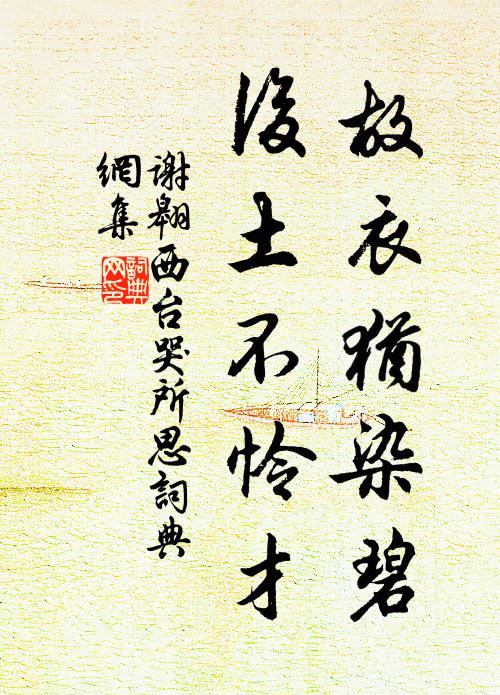 故衣猶染碧
後土不怜才
謝翱西台哭所思詞典
網集
詞典網印